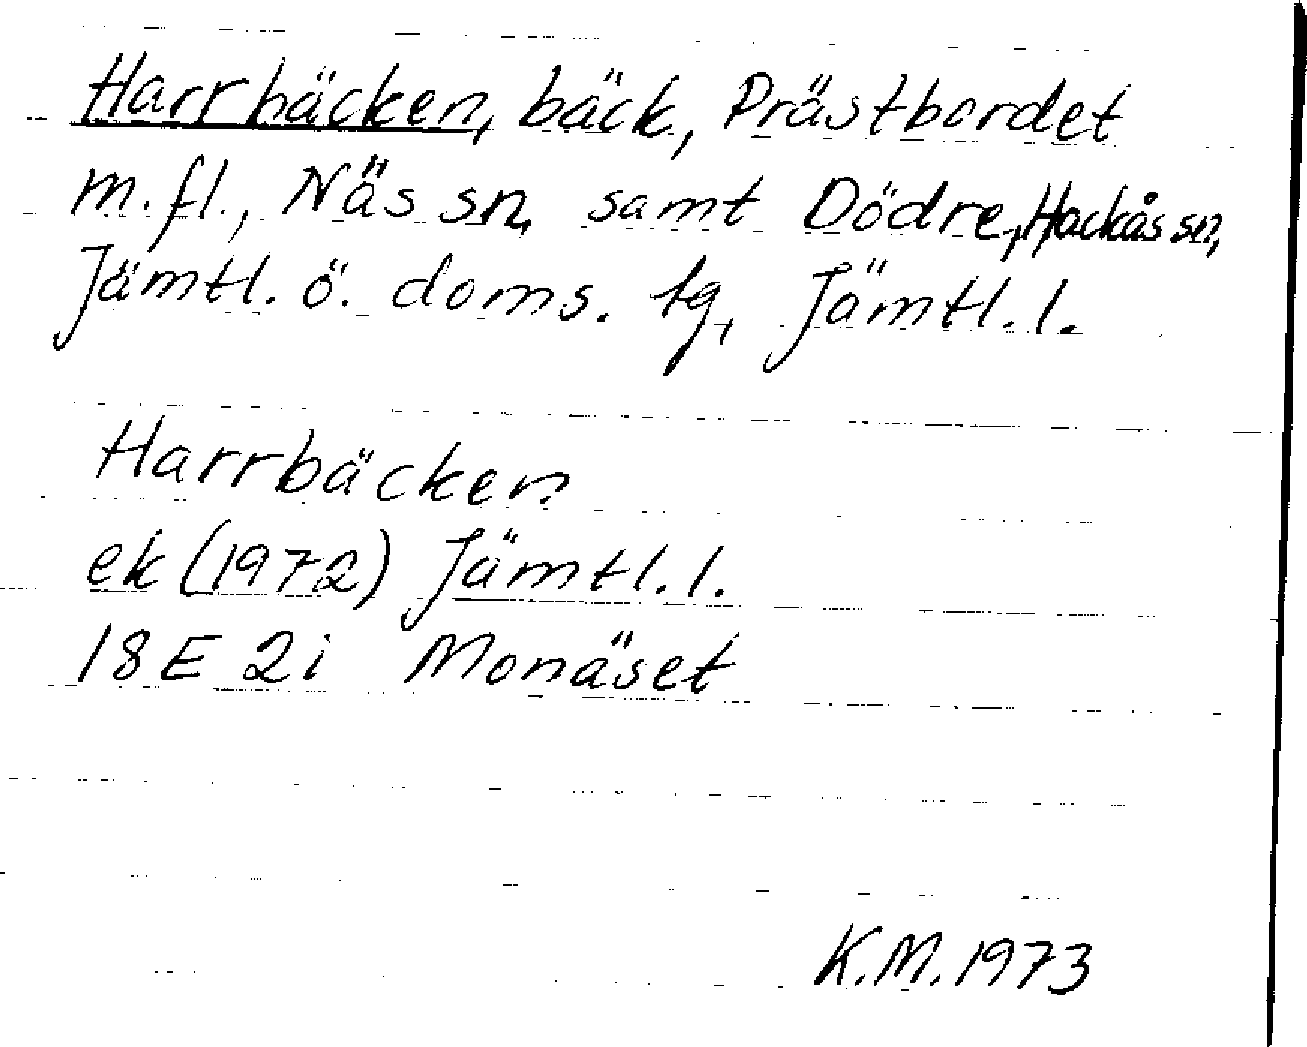 Harrbäcken, bäck, Prästbordet
m.fl., Näs sn, samt Dödre, Hackås sn,
Jämtl. ö. doms. tg, Jämtl. l.
Harrbäcken
ek (1972) Jämtl. l.
18E 2i Monäset
K.M. 1973